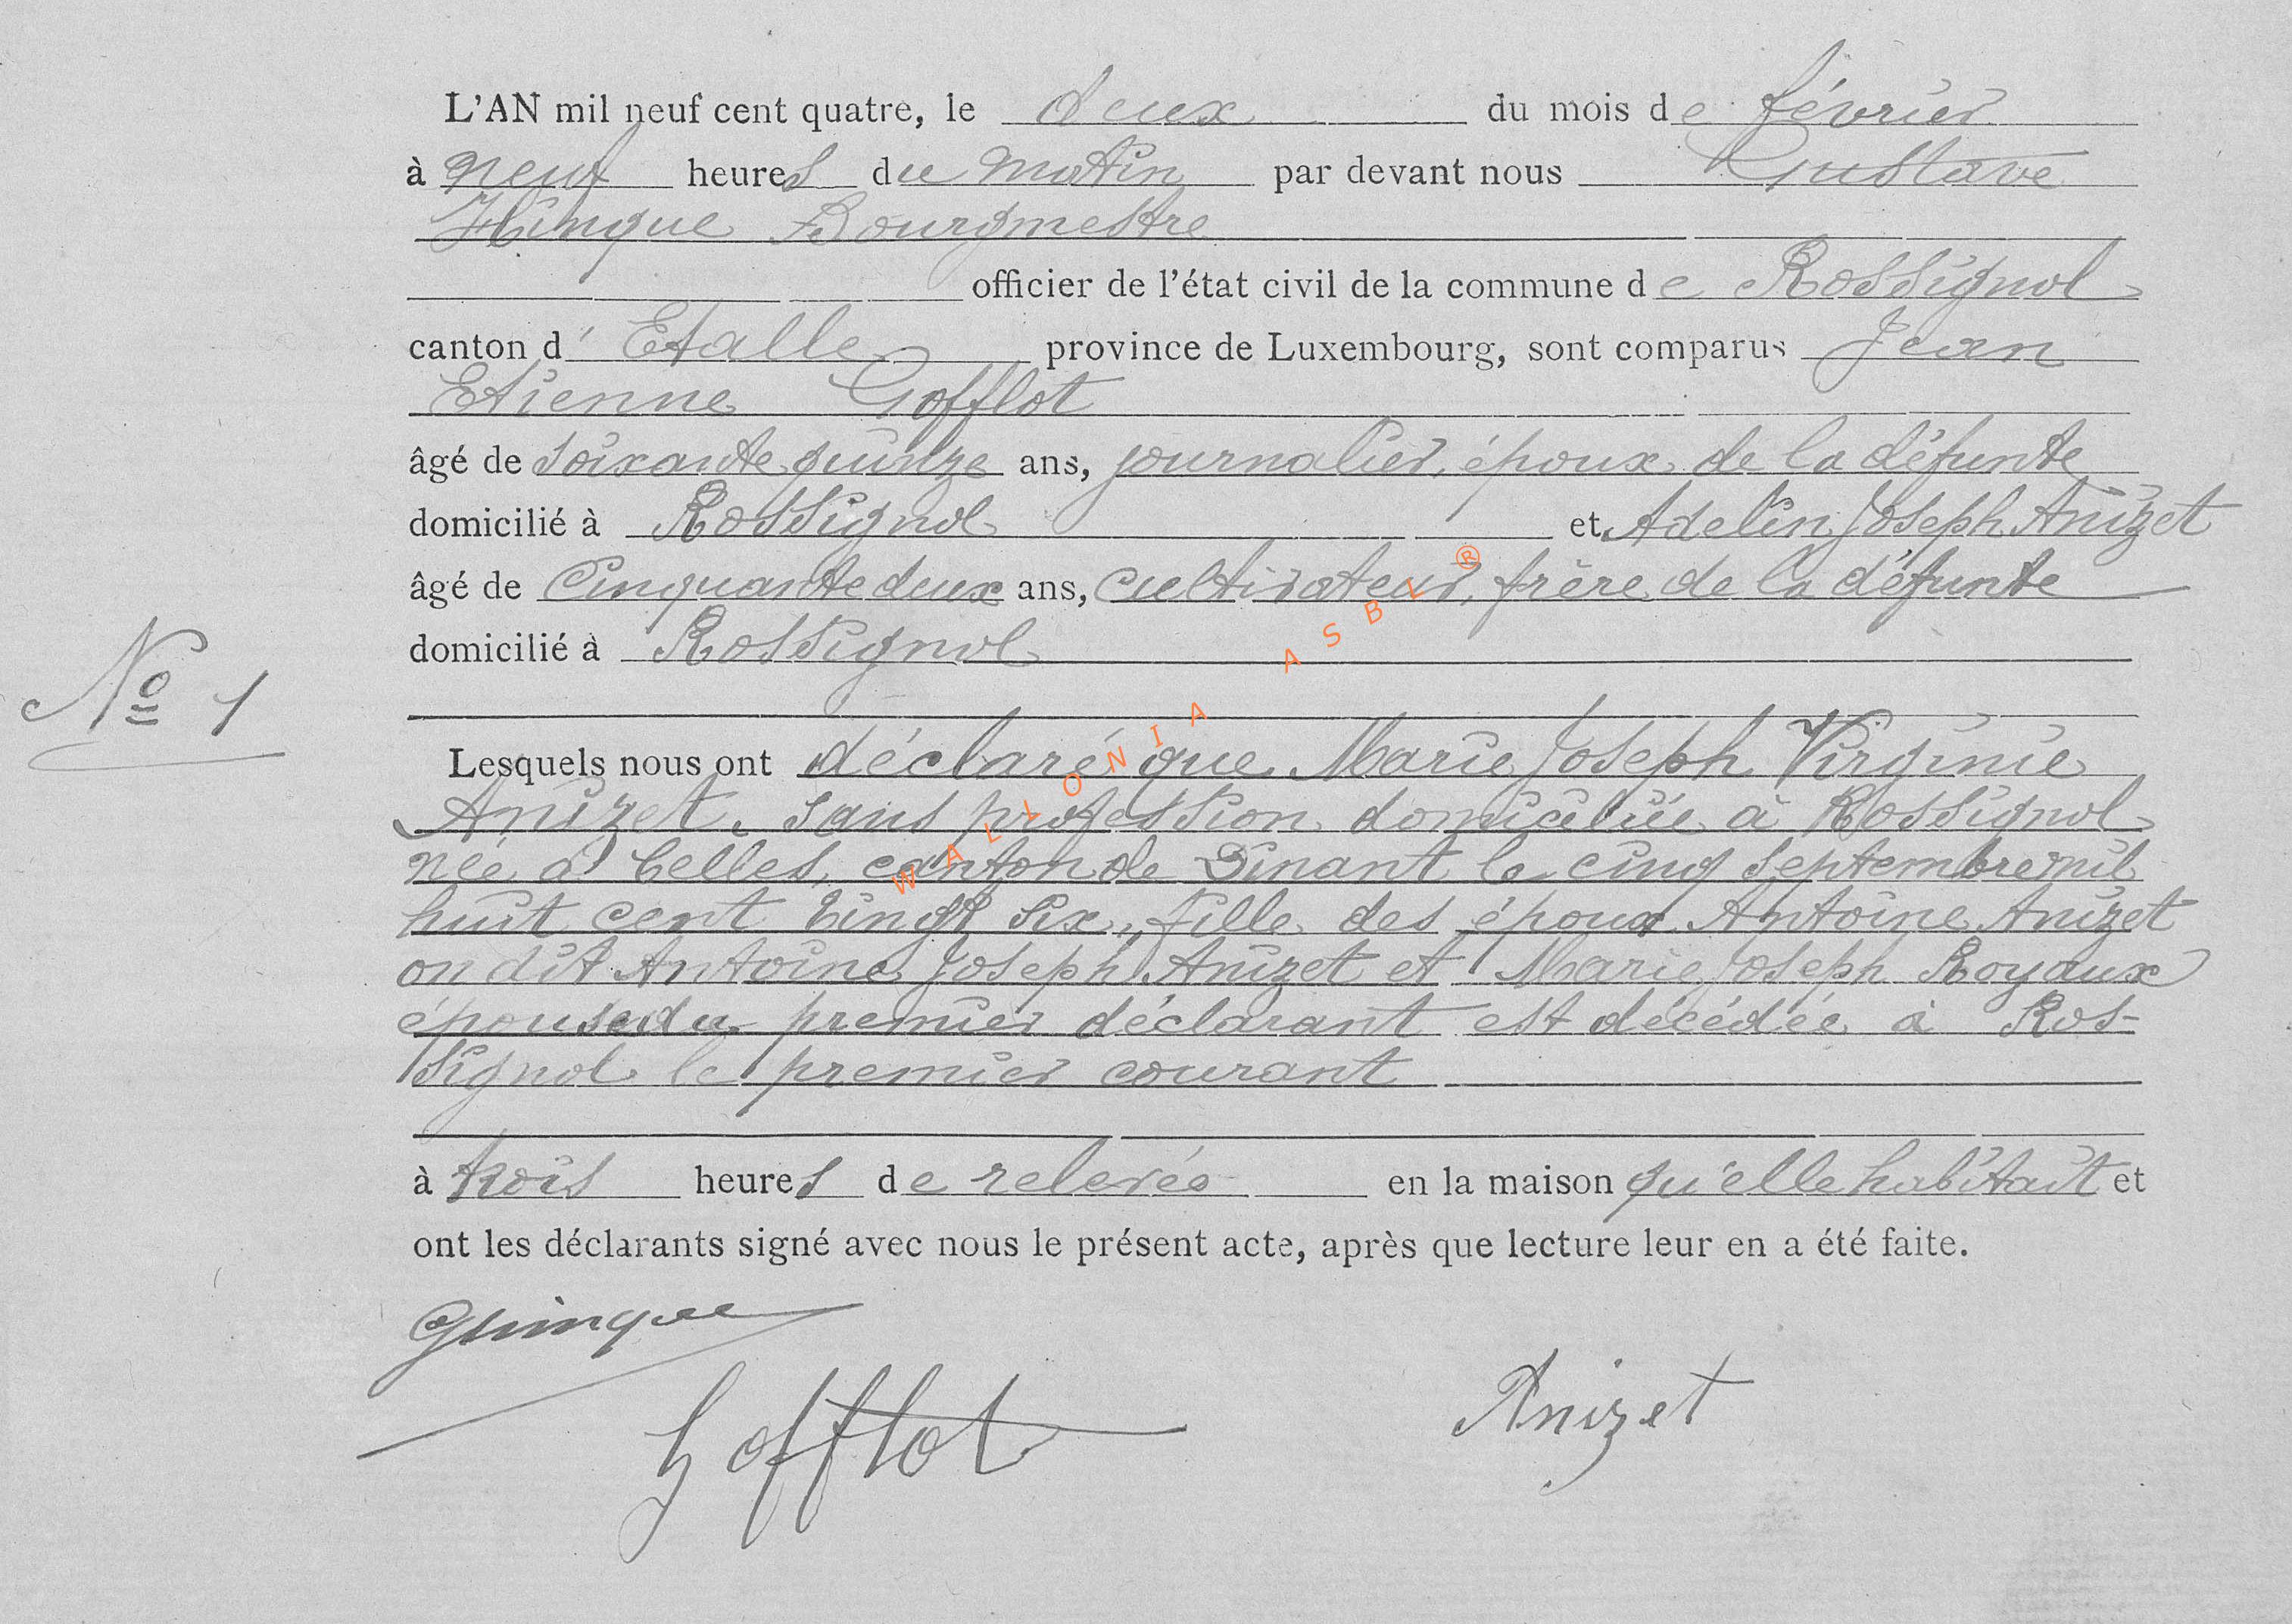 L'AN mil neuf cent quatre, le deux du mois de février
à neuf heures du matin par devant nous Gustave
Hinque Bourgmestre
officier de l'état civil de la commune de Rossignol
canton d'Etalle province de Luxembourg, sont comparus Jean
Etienne Gofflot
âgé de soixante quinze ans, journalier, époux de la défunte
domicilié à Rossignol et Adelin Joseph Anizet
âgé de Cinquante deux ans, cultivateur, frère de la défunte
domicilié à Rossignol
Nº 1
Lesquels nous ont déclaré que Marie Joseph Virginie
Anizet, sans profession domiciliée à Rossignol
née à Celles, canton de Dinant le cinq septembre mil
huit cent vingt six, fille des époux Antoine Anizet
on dit Antoine Joseph Anizet et Marie Joseph Royaux
épouse du premier déclarant est décédée à Ros-
signol le premier courant
à trois heures de relevée en la maison qu'elle habitait et
ont les déclarants signé avec nous le présent acte, après que lecture leur en a été faite.
GHinque
Gofflot
Anizet
WALLONIA ASBL ®